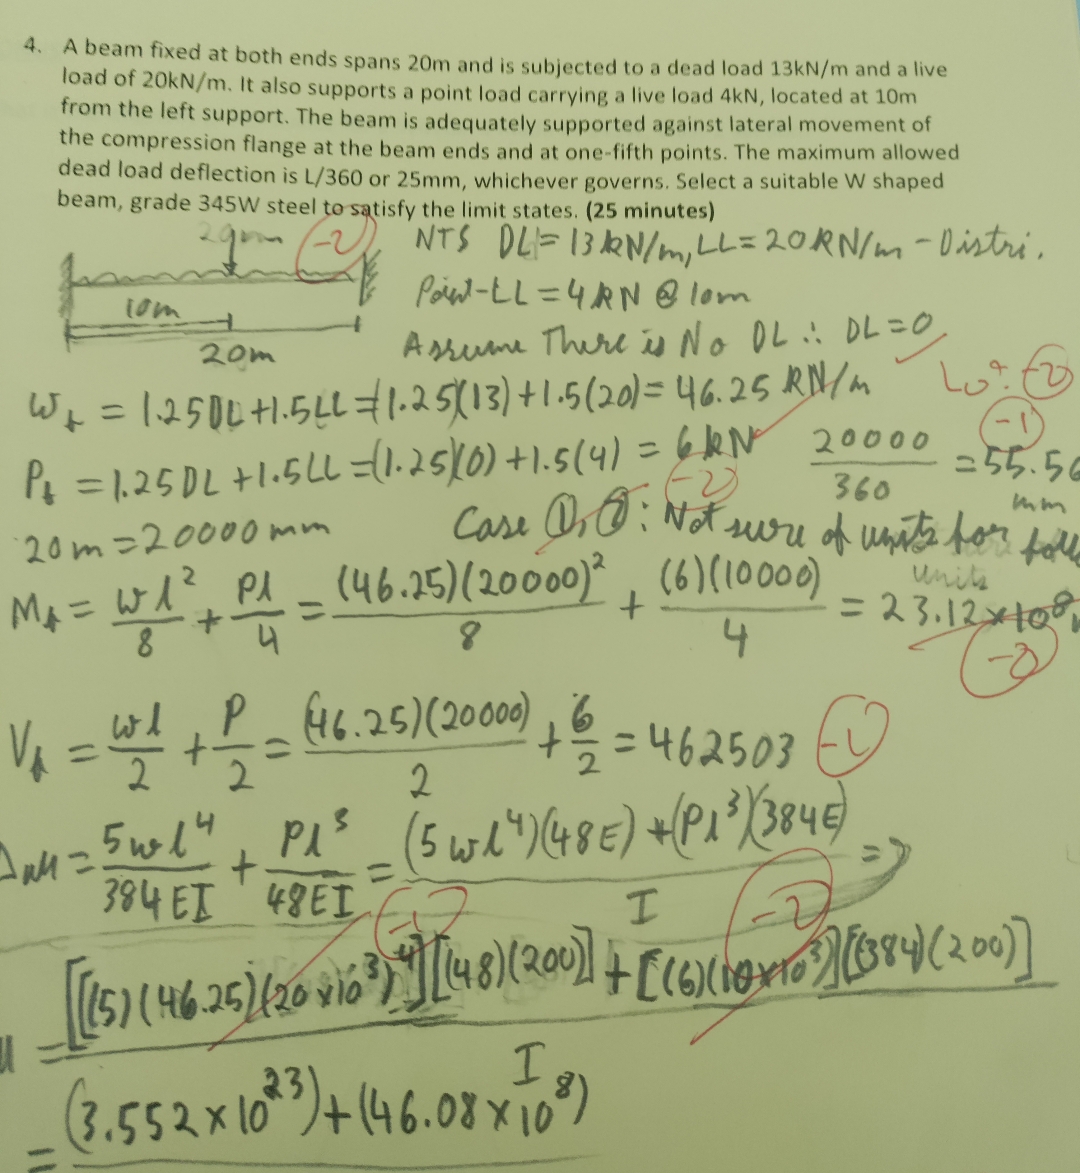 4. A beam fixed at both ends spans 20m and is subjected to a dead load 13kN/m and a live
load of 20kN/m. It also supports a point load carrying a live load 4kN, located at 10m
from the left support. The beam is adequately supported against lateral movement of
the compression flange at the beam ends and at one-fifth points. The maximum allowed
dead load deflection is L/360 or 25mm, whichever governs. Select a suitable W shaped
beam, grade 345W steel to satisfy the limit states. (25 minutes)
-2 NTS DL = 13kN/m, LL = 20kN/m - Distri.
10m Point-LL = 4kN @ 10m
20m Assume There is No DL ∴ DL = 0
Wf = 1.25DL + 1.5LL = (1.25)(13) + 1.5(20) = 46.25 kN/m -2
-1
Pf = 1.25DL + 1.5LL = (1.25)(0) + 1.5(4) = 6kN 20000/360 = 55.56 mm
-2
20m = 20000mm Case ①, ②: Not sure of units for
units
Mf = wl²/8 + Pl/4 = (46.25)(20000)²/8 + (6)(10000)/4 = 23.12 × 10⁸
-2
Vf = wl/2 + P/2 = (46.25)(20000)/2 + 6/2 = 462503 -1
= 5wl⁴/384EI + Pl³/48EI = (5wl⁴)(48E) + (Pl³)(384E)/I =>
-1 -2
= [[(5)(46.25)(20×10³)⁴][(48)(200)] + [(6)(10×10³)][(384)(200)]/I
= (3.552 × 10²³) + (46.08 × 10⁸)